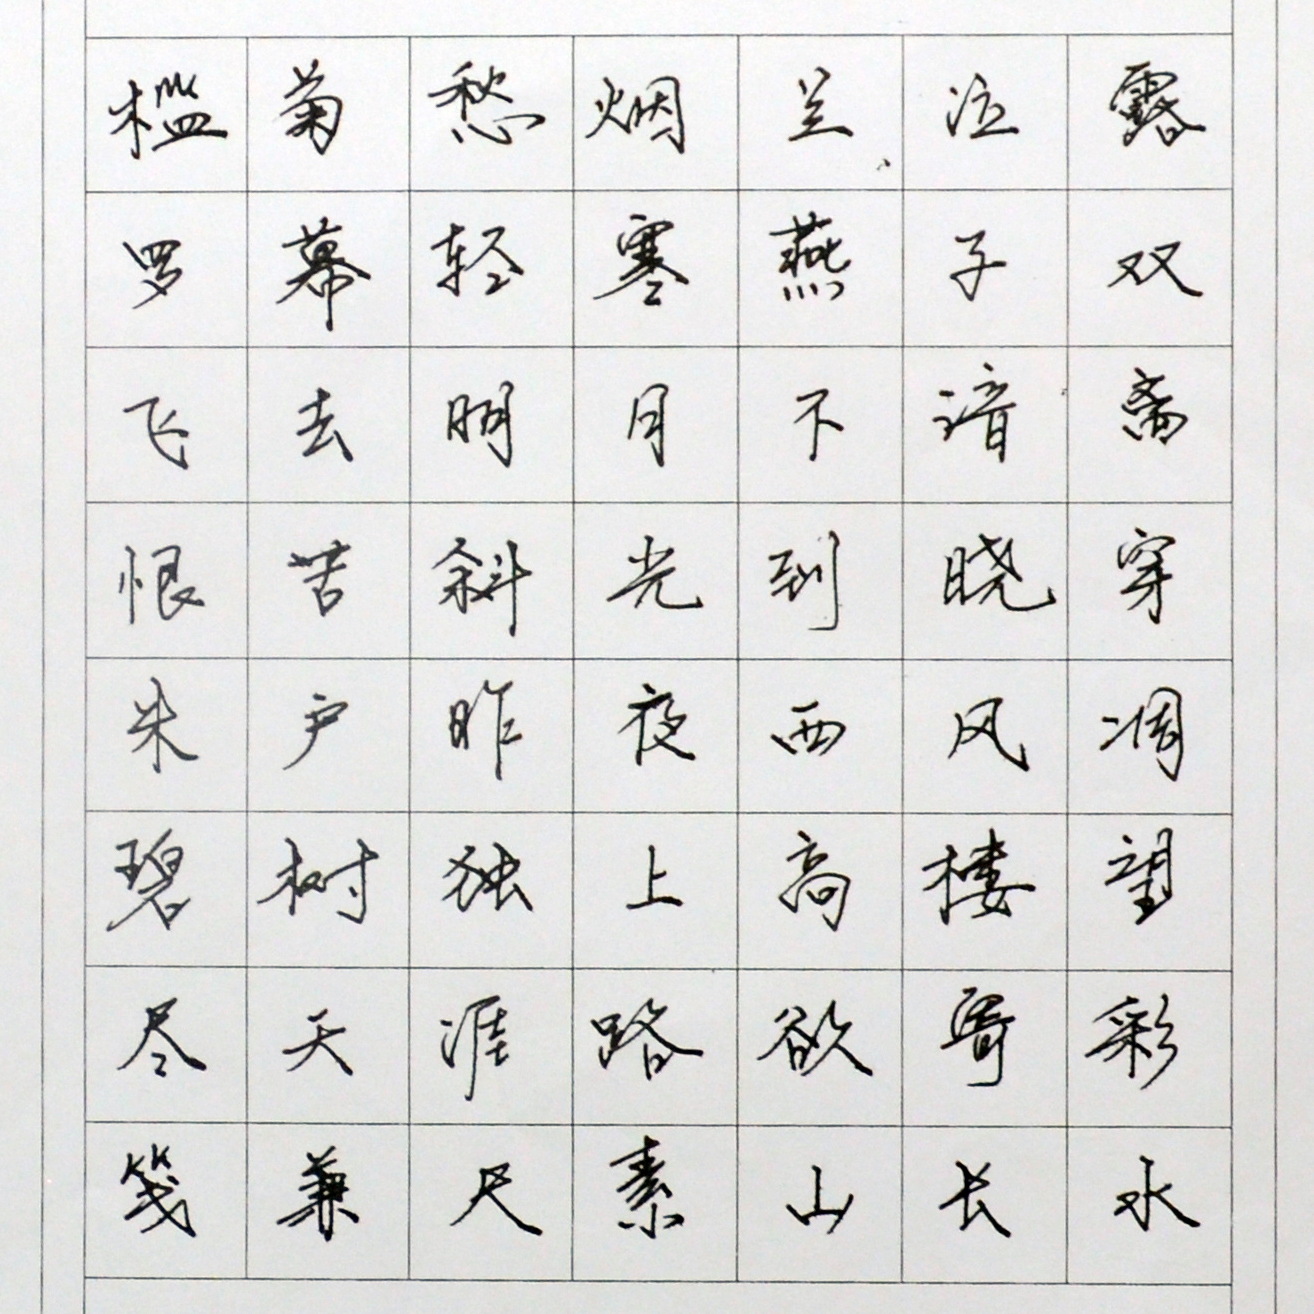 槛菊愁烟兰泣露
罗幕轻寒燕子双
飞去明月不谙离
恨苦斜光到晓穿
朱户昨夜西风凋
碧树独上高楼望
尽天涯路欲寄彩
笺兼尺素山长水